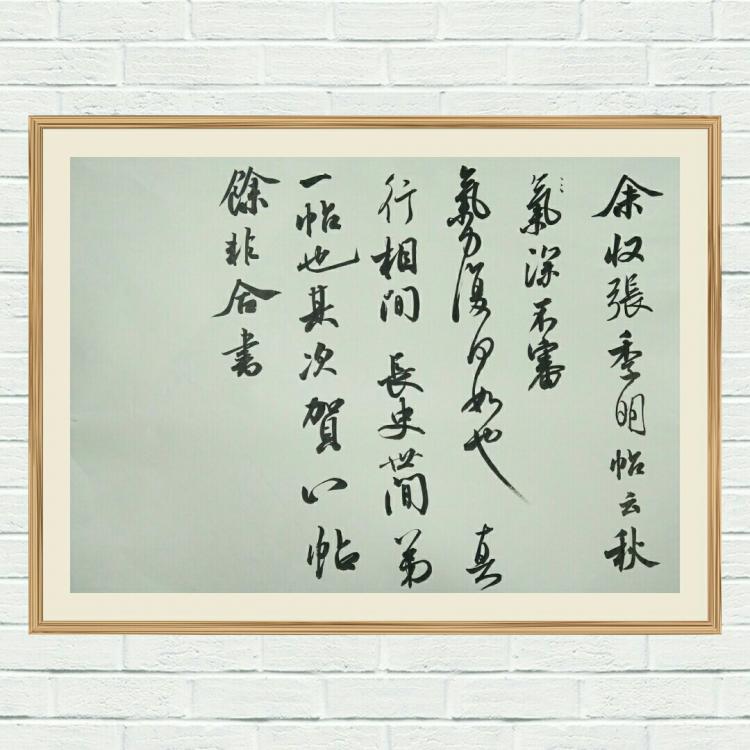 余収張季明帖云秋
氣深不審
氣力復何如也 真
行相間 長史世間第
一帖也其次賀八帖
餘非合書